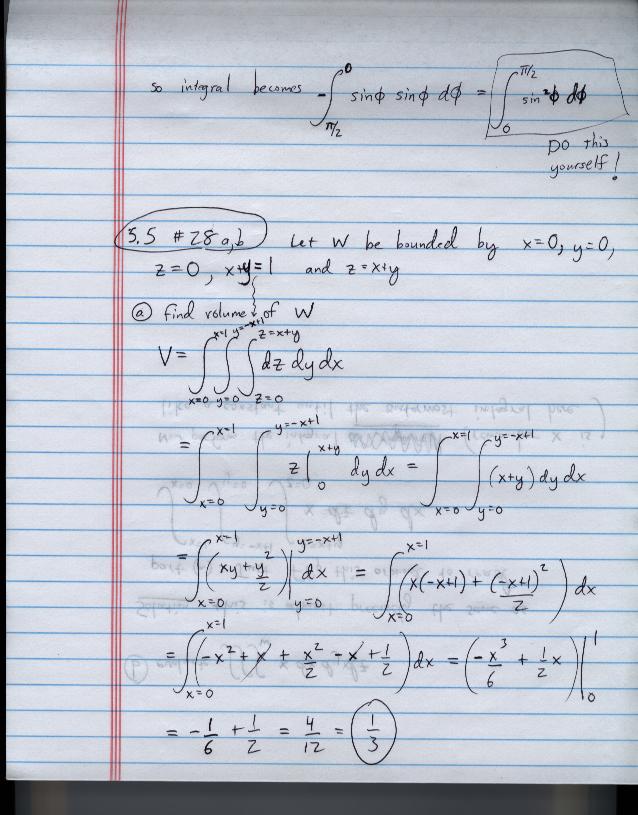 so integral becomes -∫_{π/2}^{0} sinφ sinφ dφ = ∫_{0}^{π/2} sin²φ dφ
DO this
yourself!
5.5 #28 a,b Let W be bounded by x=0, y=0,
z=0, x+y=1 and z=x+y
ⓐ find volume of W
V = ∫_{x=0}^{x=1} ∫_{y=0}^{y=-x+1} ∫_{z=0}^{z=x+y} dz dy dx
= ∫_{x=0}^{x=1} ∫_{y=0}^{y=-x+1} z|_{0}^{x+y} dy dx = ∫_{x=0}^{x=1} ∫_{y=0}^{y=-x+1} (x+y) dy dx
= ∫_{x=0}^{x=1} (xy + y²/2)|_{y=0}^{y=-x+1} dx = ∫_{x=0}^{x=1} (x(-x+1) + (-x+1)²/2) dx
= ∫_{x=0}^{x=1} (-x² + x + x²/2 - x + 1/2) dx = (-x³/6 + 1/2 x)|_{0}^{1}
= -1/6 + 1/2 = 4/12 = 1/3